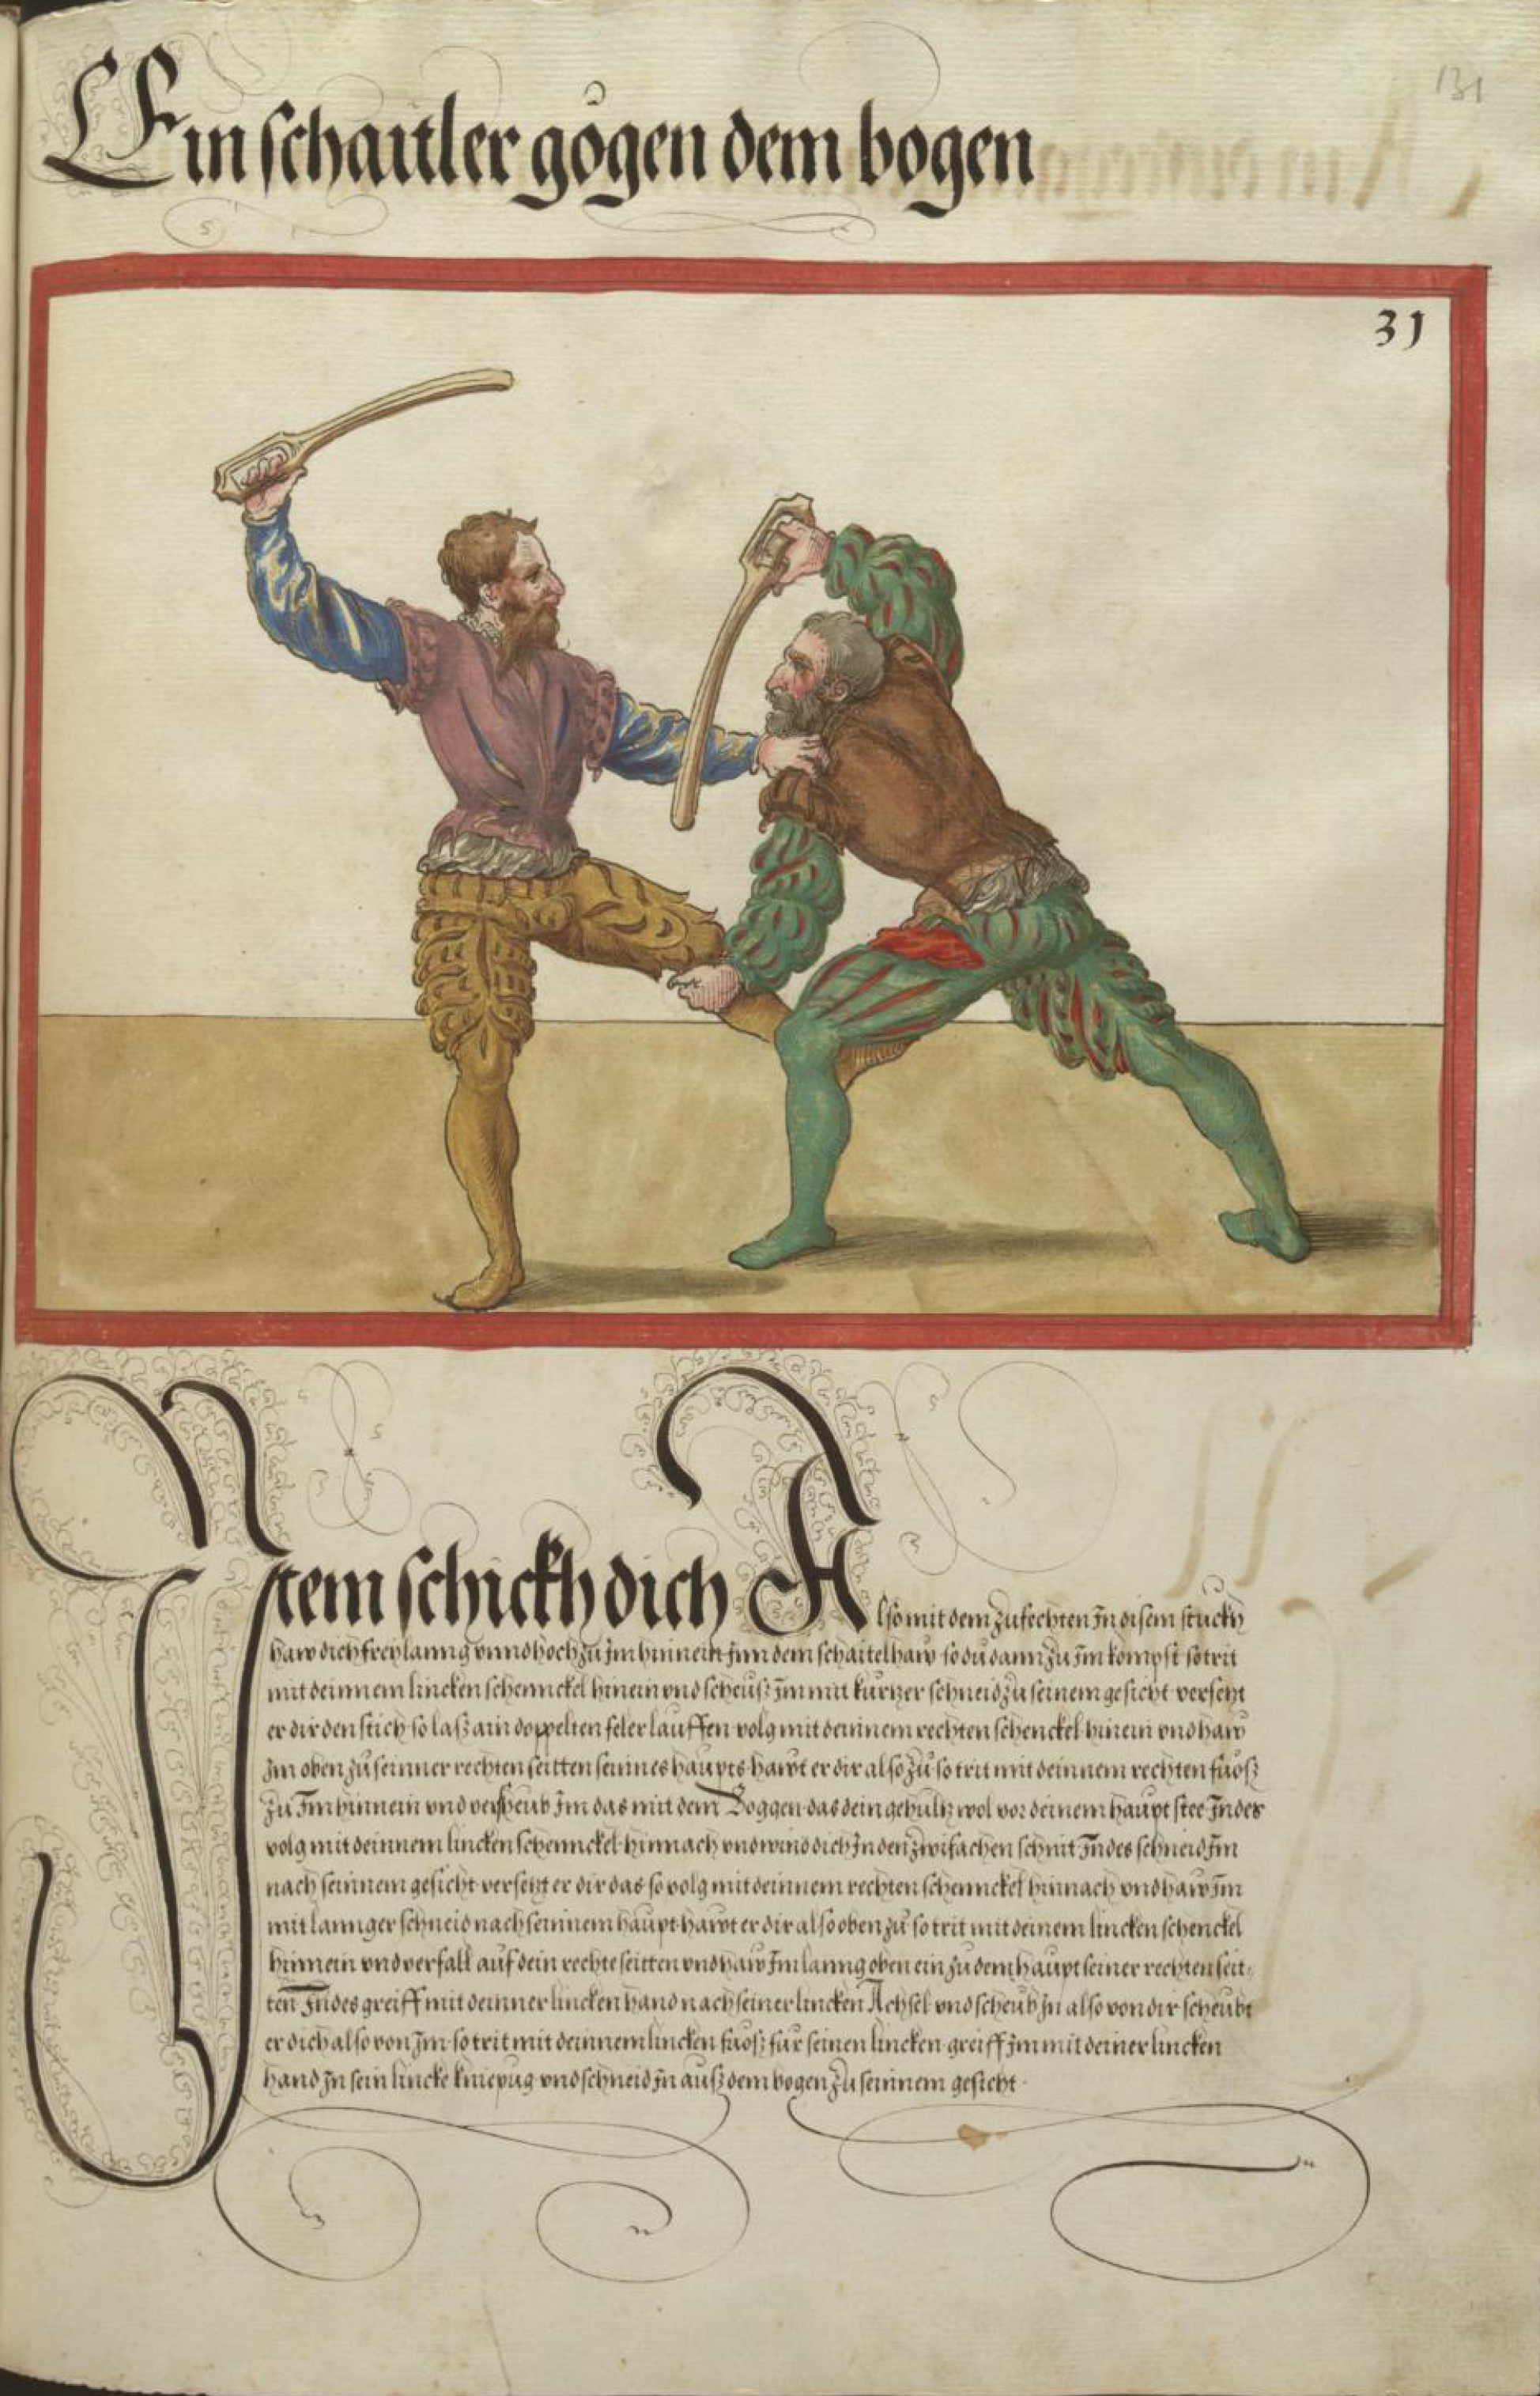 Ein schaitler gögen dem bogen
131
31
Item schickh dich Also mit dem zufechten In disem stuckh
haw dich frey lanng vnnd hoch zu Im hinnein Inn dem schaitelhaw so du dann zu Im kompst so trit
mit deinnem lincken schennckel hinein vnd scheuß Im mit kurtzer schneid zu seinem gesicht versetzt
er dir den stich so laß ain doppelten feler lauffen volg mit deinnem rechten schenckel hinein vnd haw
Im oben zu seinner rechten seitten seinnes haupts hawt er dir also zu so trit mit deinnem rechten fuoß
zu Im hinnein vnd verscheub Im das mit dem Doggen das dein gehultz wol vor deinem haupt stee Indes
volg mit deinnem lincken schennckel hinnach vnd wind dich In den zwifachen schnit Indes schneid Im
nach seinnem gesicht versetzt er dir das so volg mit deinnem rechten schennckel hinnach vnd haw Im
mit lannger schneid nach seinnem haupt hawt er dir also oben zu so trit mit deinem lincken schenckel
hinnein vnd verfall auf dein rechte seitten vnd haw Im lanng oben ein zu dem haupt seiner rechten seit-
ten Indes greiff mit deinner lincken hand nach seiner lincken Achsel vnd scheub In also von dir scheubt
er dich also von Im so trit mit deinnem lincken fuoß für seinen lincken greiff Im mit deiner lincken
hand In sein lincke kniepug vnd schneid In auß dem bogen zu seinnem gesicht